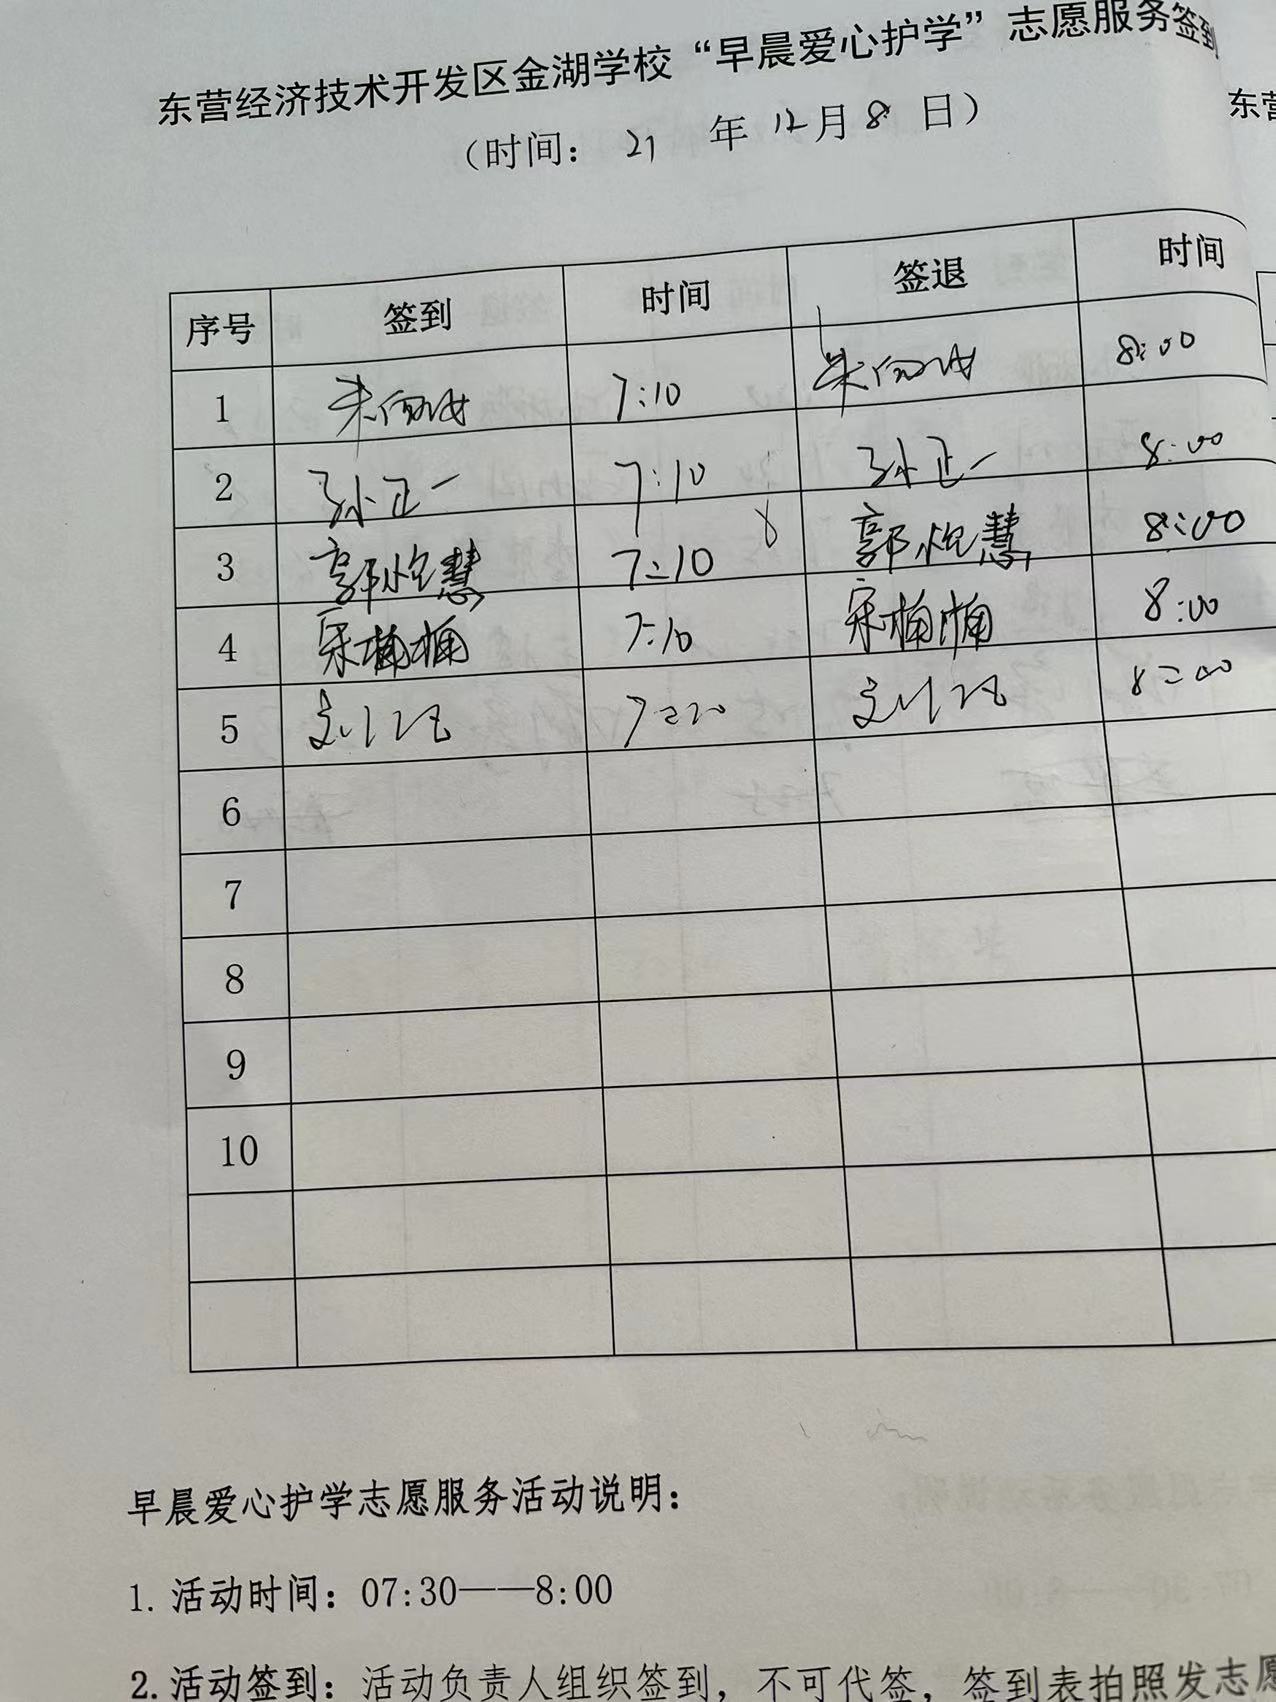 东营经济技术开发区金湖学校“早晨爱心护学”志愿服务签到
（时间： 21 年 12月 8 日）
东营
序号 签到 时间 签退 时间
1 7:10 8:00
2 孙正一 7:10 孙正一 8:00
3 郭悦慧 7:10 郭悦慧 8:00
4 宋楠楠 7:10 宋楠楠 8:00
5 7:20 8:00
6
7
8
9
10
早晨爱心护学志愿服务活动说明：
1. 活动时间：07:30——8:00
2. 活动签到：活动负责人组织签到，不可代签，签到表拍照发志愿